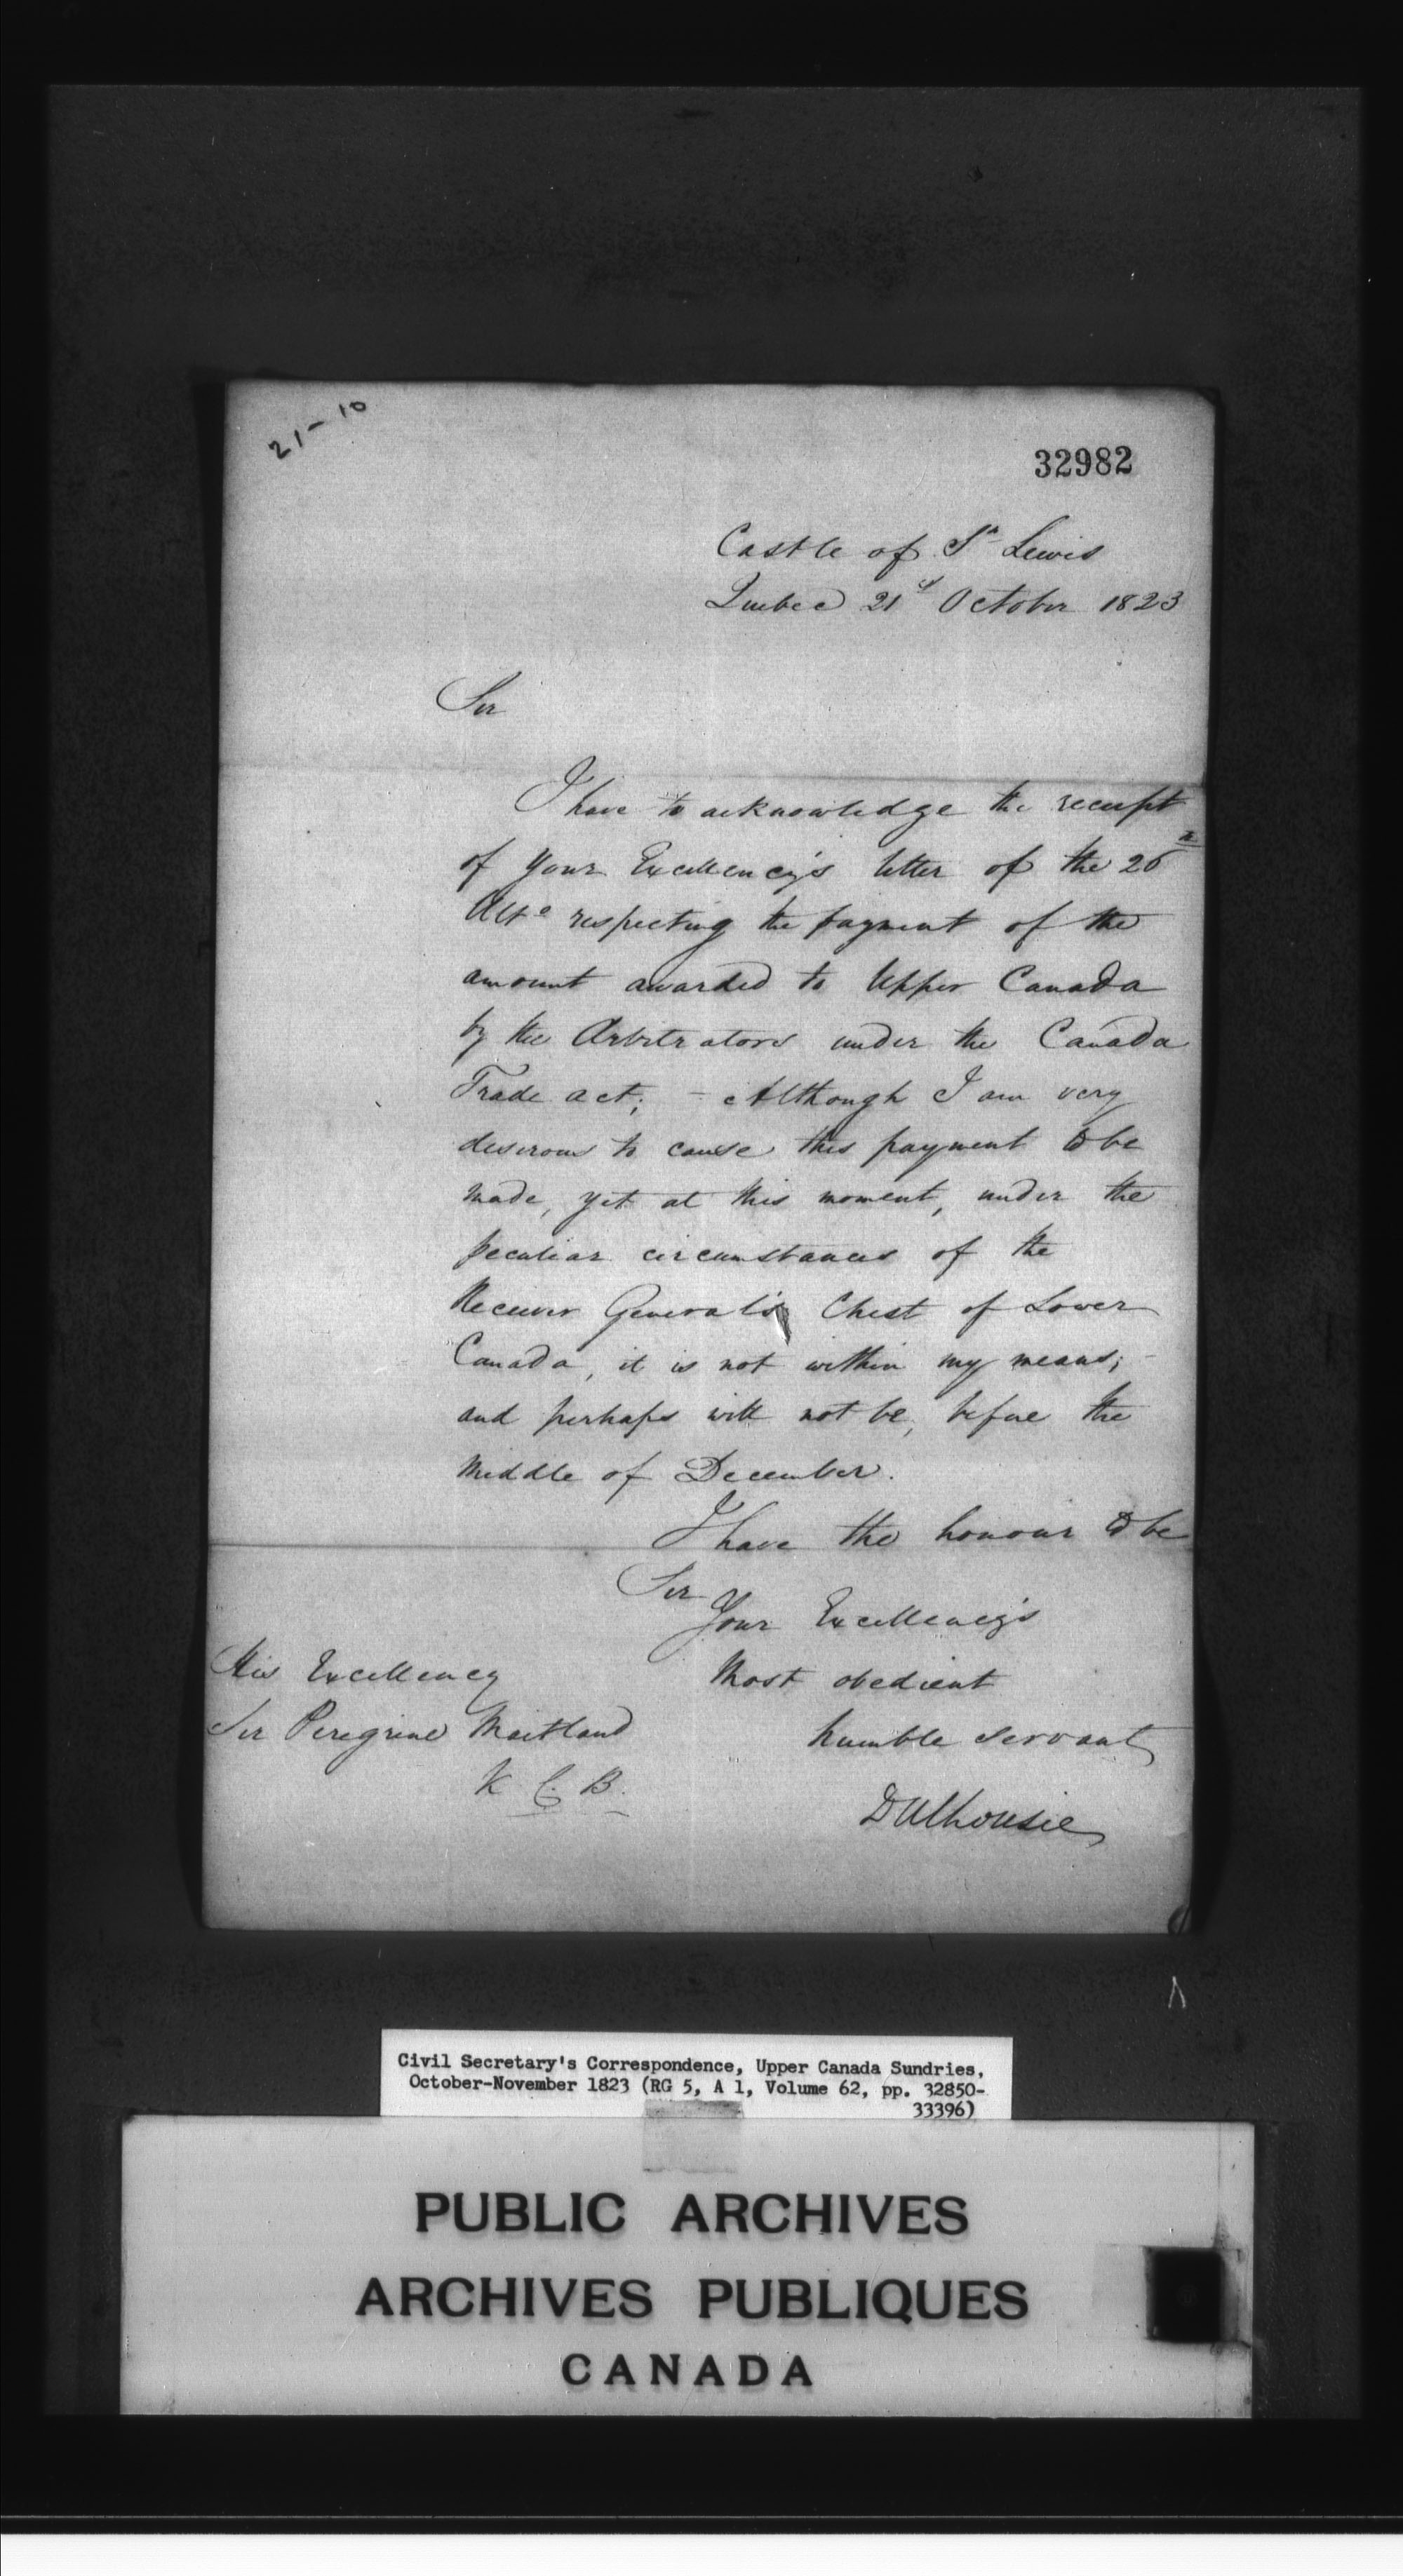 21-10
32982
Castle of St Lewis
Quebec 21st October 1823
Sir
I have to acknowledge the receipt
of Your Excellency's letter of the 26th
Ulto respecting the payment of the
amount awarded to Upper Canada
by the Arbitrators under the Canada
Trade act; - Although I am very
desirous to cause this payment to be
made, yet at this moment, under the
peculiar circumstances of the
Receiver General's Chest of Lower
Canada, it is not within my means; -
and perhaps will not be, before the
Middle of December.
I have the honour to be
Sir
Your Excellency's
Most obedient
humble servant
Dalhousie
His Excellency
Sir Peregrine Maitland
K. C. B.
Civil Secretary's Correspondence, Upper Canada Sundries,
October-November 1823 (RG 5, A 1, Volume 62, pp. 32850-
33396)
PUBLIC ARCHIVES
ARCHIVES PUBLIQUES
CANADA